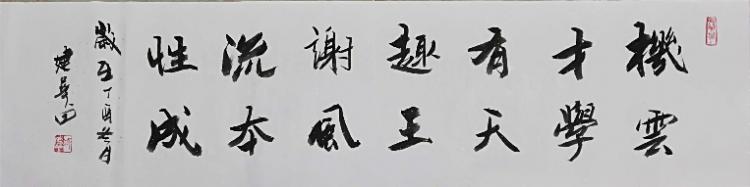 機雲
才學
有天
趣王
謝風
流本
性成
歲在丁酉冬月
建英田